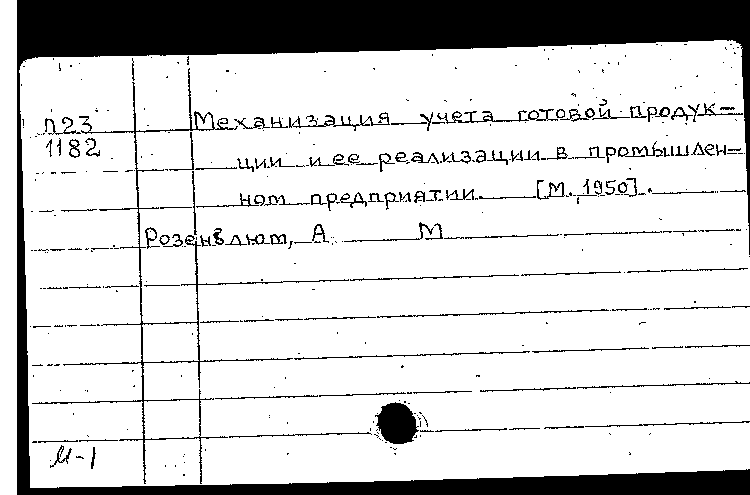 П23
1182
Механизация учета готовой продук-
ции и ее реализации в промышлен-
ном предприятии. [М., 1950].
Розенблюм, А. М
М-1